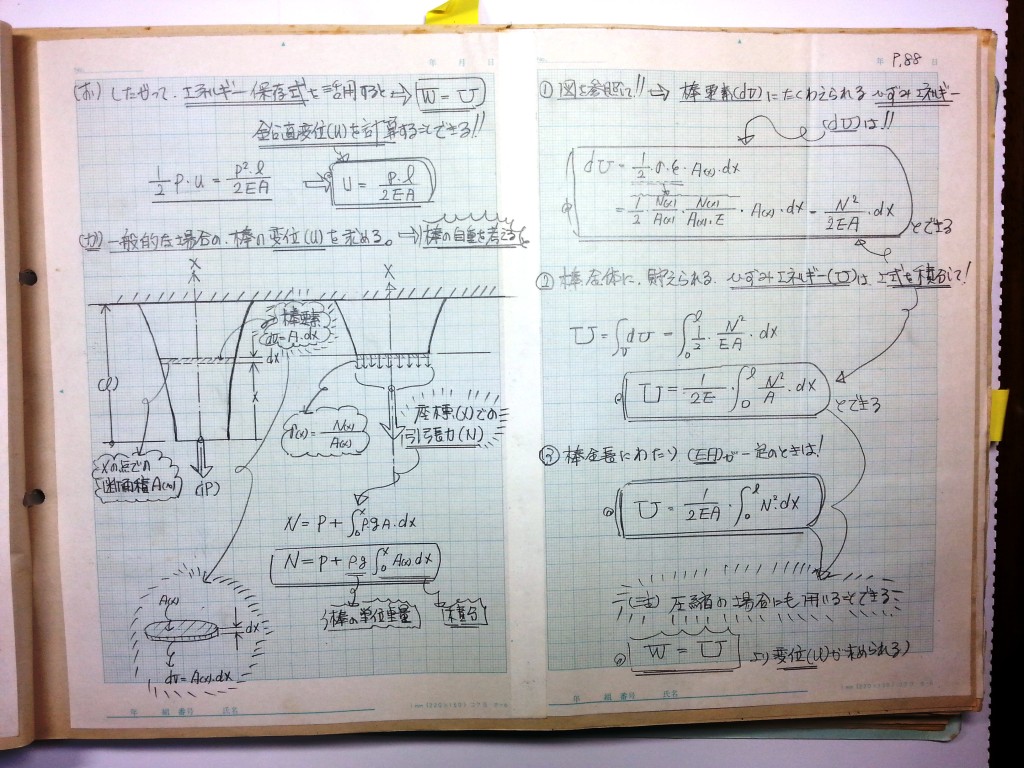 年 月 日
(お) したがって、エネルギー保存式を活用すると→ W = U
鉛直変位(u)を計算することできる!!
1/2 P・u = P²・l/2EA ⇒ u = P・l/2EA
(カ) 一般的な場合の、棒の変位(u)を求める。→ 棒の自重を考える
X X
棒要素
dv = A・dx
dx
(l)
x
σ(x) = N(x)/A(x)
座標(x)での
引張力(N)
Xの点での
断面積A(x)
(P)
N = P + ∫₀ˣ ρg A・dx
N = P + ρg ∫₀ˣ A(x)dx
棒の単位重量
積分
A(x)
dx
dv = A(x)・dx
年 組 番号 氏名
年 P.88 日
① 図を参照して!! → 棒要素(dv)にたくわえられるひずみエネルギー
(dU)は!!
dU = 1/2・σ・ε・A(x)・dx
= 1/2 N(x)/A(x)・N(x)/A(x)・E・A(x)・dx = N²/2EA・dx
とできる
② 棒全体に、貯えられる、ひずみエネルギー(U)は、上式を積分して!
U = ∫ᵥ dU = ∫₀ˡ 1/2・N²/EA・dx
U = 1/2E・∫₀ˡ N²/A・dx
とできる
③ 棒全長にわたり (EA)が一定のときは!
U = 1/2EA・∫₀ˡ N²dx
(注) 圧縮の場合にも用いることできる
W = U より変位(u)が求められる)
年 組 番号 氏名